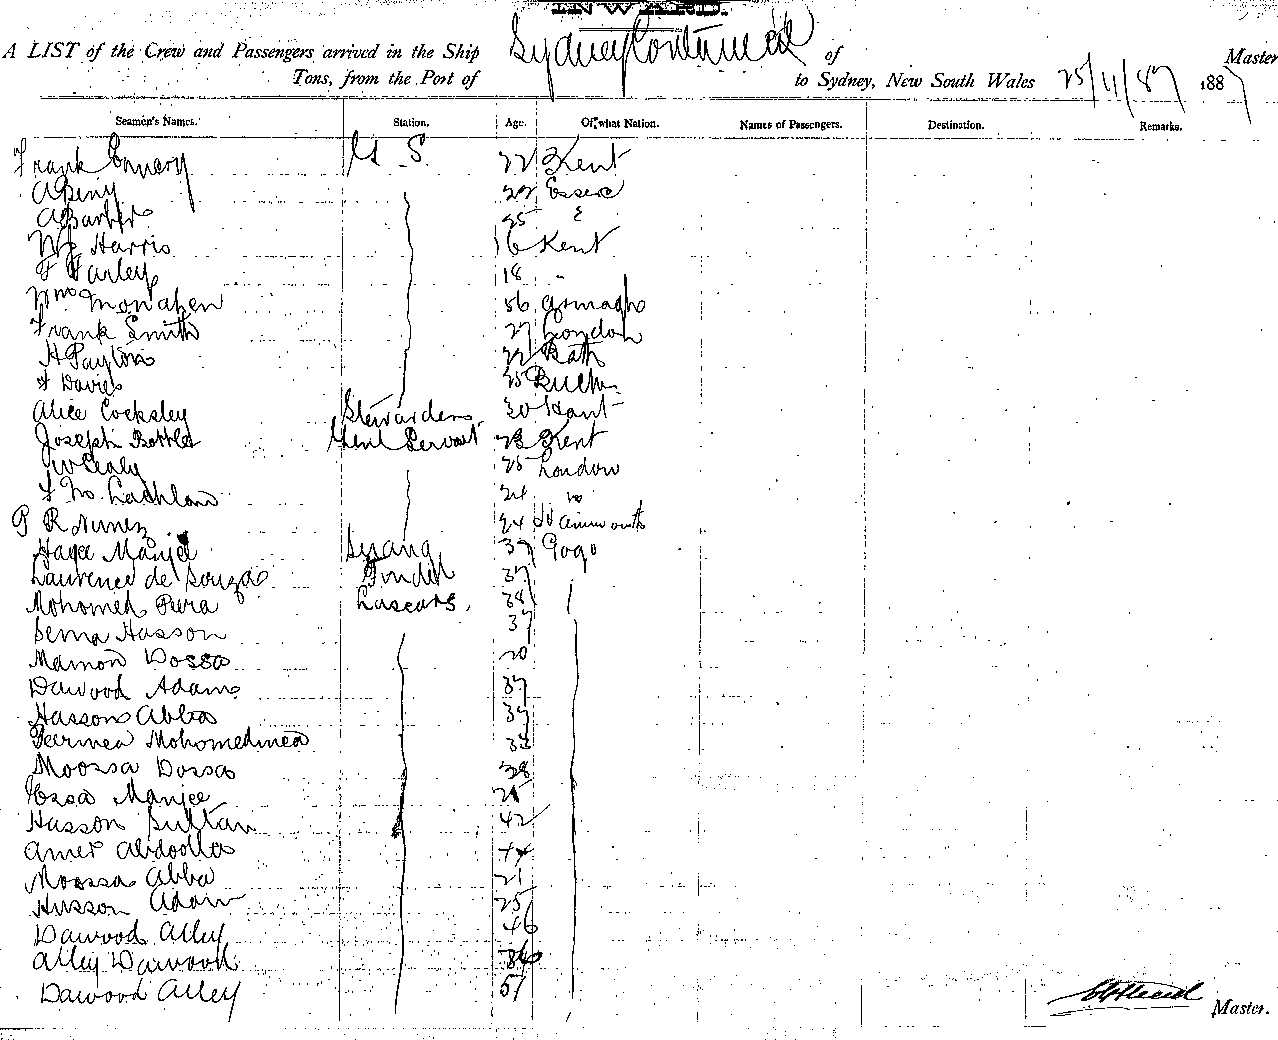 INWARD.
A LIST of the Crew and Passengers arrived in the Ship Sydney Continued of Master
Tons, from the Port of to Sydney, New South Wales 25/11/87 1887
Seamen's Names. Station. Age. Of what Nation. Names of Passengers. Destination. Remarks.
Frank Emery G S 22 Kent
22 Essex
A Barber 25
W J Harris 16 Kent
F Farley 18 "
Wm Monahen 56 Armagh
Frank Smith 27 London
22 Bath
F Davies 25
Alice Cocksley Stewardess 30 Hant
Joseph Bottle Genl Servant 23 Kent
W Sealy 25 London
F Mc Lachlan 24
P R Nunez 24
Manjee Serang 37 Gogo
Laurence de Souza Tindel 37
Mohomed Pura Lascars 38
Hasson 37
Mamon Dossa 20
Dawood Adams 37
Hasson Abba 37
Peermea Mohomedmea 32
Moossa Dossa 28
Essa Manjee 25
Hasson Sultan 42
Amer Abdoolla 44
Moossa Abba 21
Husson Adam 25
Dawood Alley 46
Alley Dawood 36
Dawood Alley 51
Master.